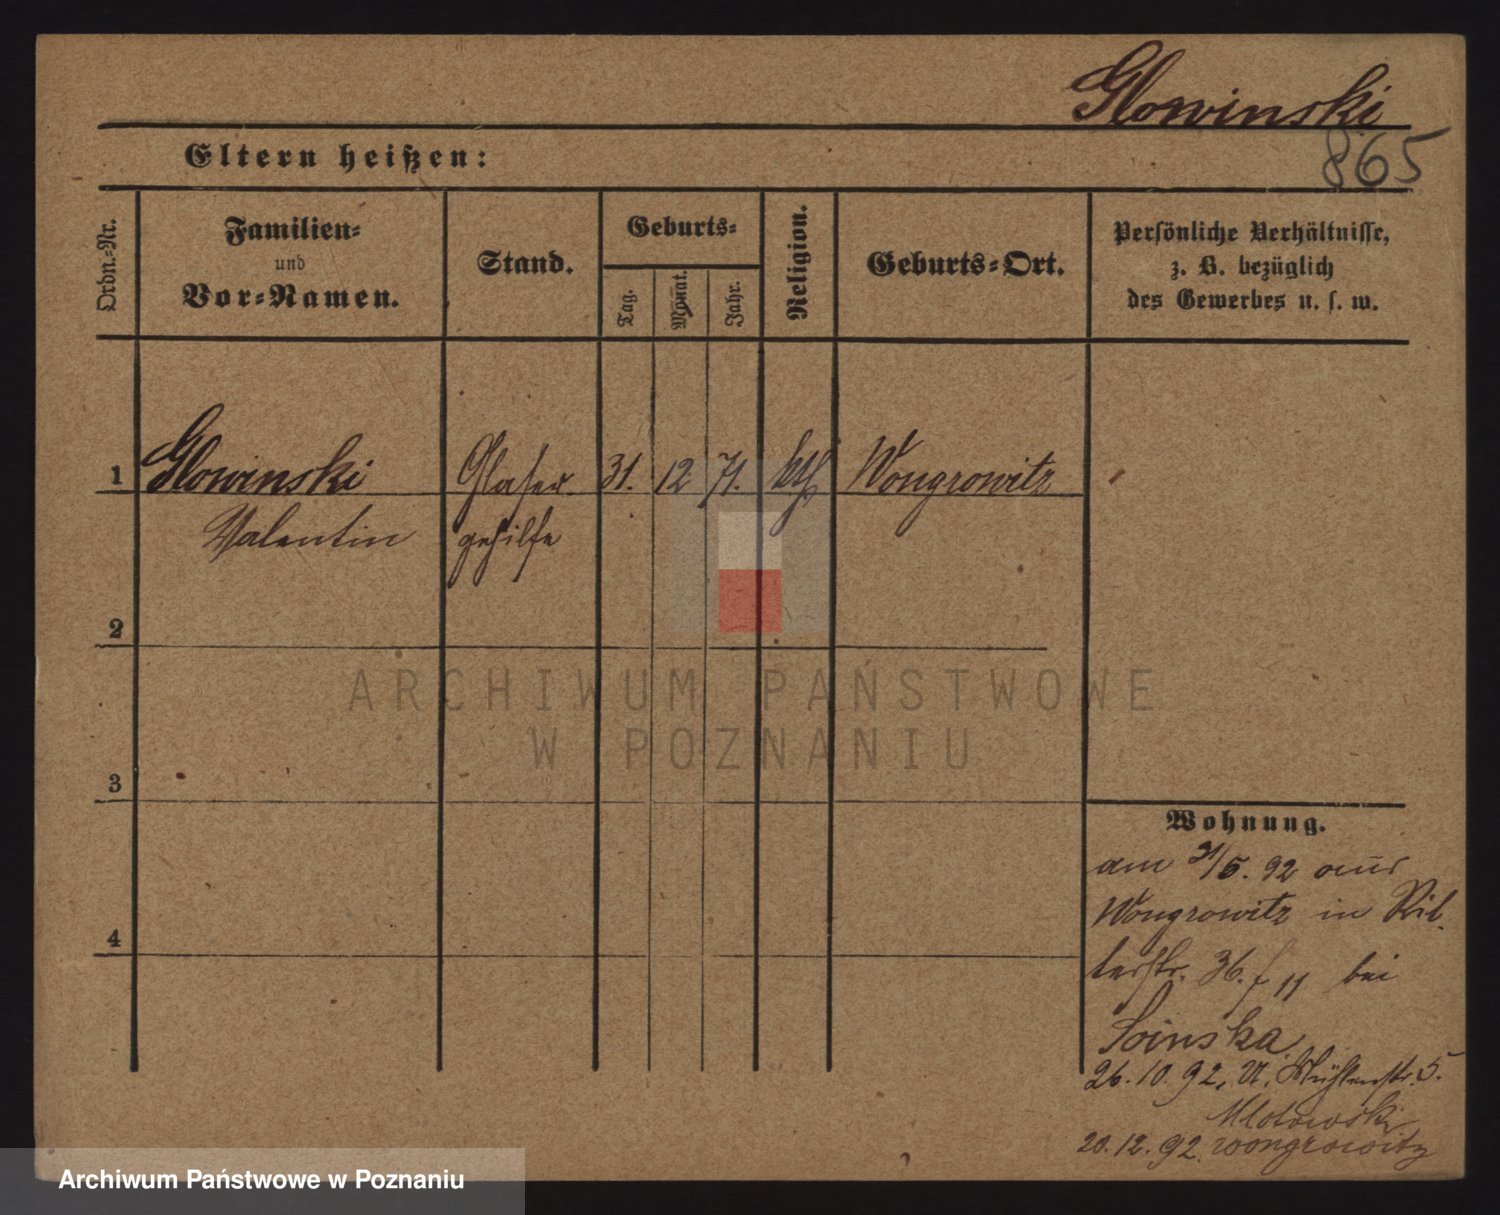 Glowinski
865
Eltern heißen:
Ordn.-Nr.
Familien-
und
Vor-Namen.
Stand.
Geburts-
Tag.
Monat.
Jahr.
Religion.
Geburts-Ort.
Persönliche Verhältnisse,
z. B. bezüglich
des Gewerbes u. s. w.
1 Glowinski Glaser 31. 12 71. kth Wongrowitz
Valentin gehilfe
2
ARCHIWUM PAŃSTWOWE
W POZNANIU
3
Wohnung.
am 21/5. 92 aus
Wongrowitz in Rit
4
terstr. 36. f 11 bei
Soinska
26. 10. 92, U. Mühlenstr. 5.
Mlotowski
20. 12. 92. Wongrowitz
Archiwum Państwowe w Poznaniu